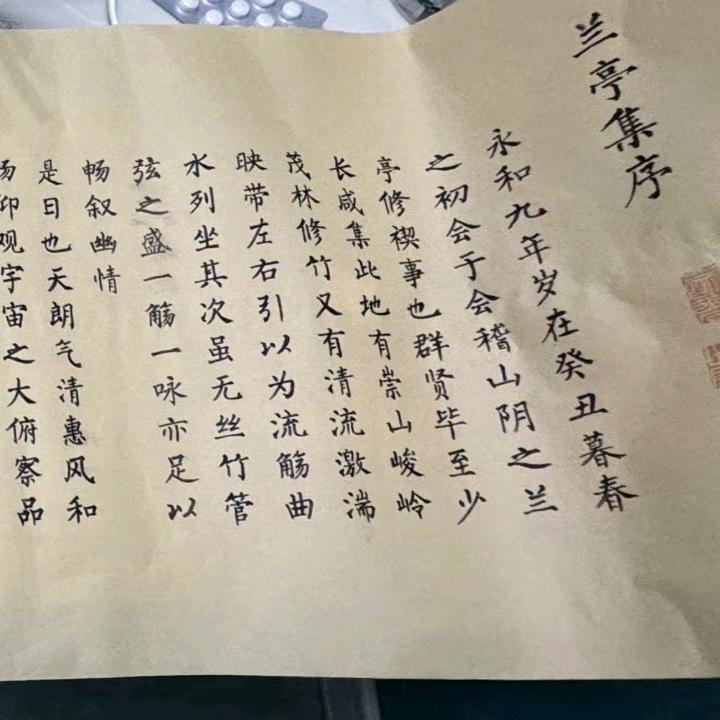 兰亭集序
永和九年岁在癸丑暮春
之初会于会稽山阴之兰
亭修禊事也群贤毕至少
长咸集此地有崇山峻岭
茂林修竹又有清流激湍
映带左右引以为流觞曲
水列坐其次虽无丝竹管
弦之盛一觞一咏亦足以
畅叙幽情
是日也天朗气清惠风和
仰观宇宙之大俯察品